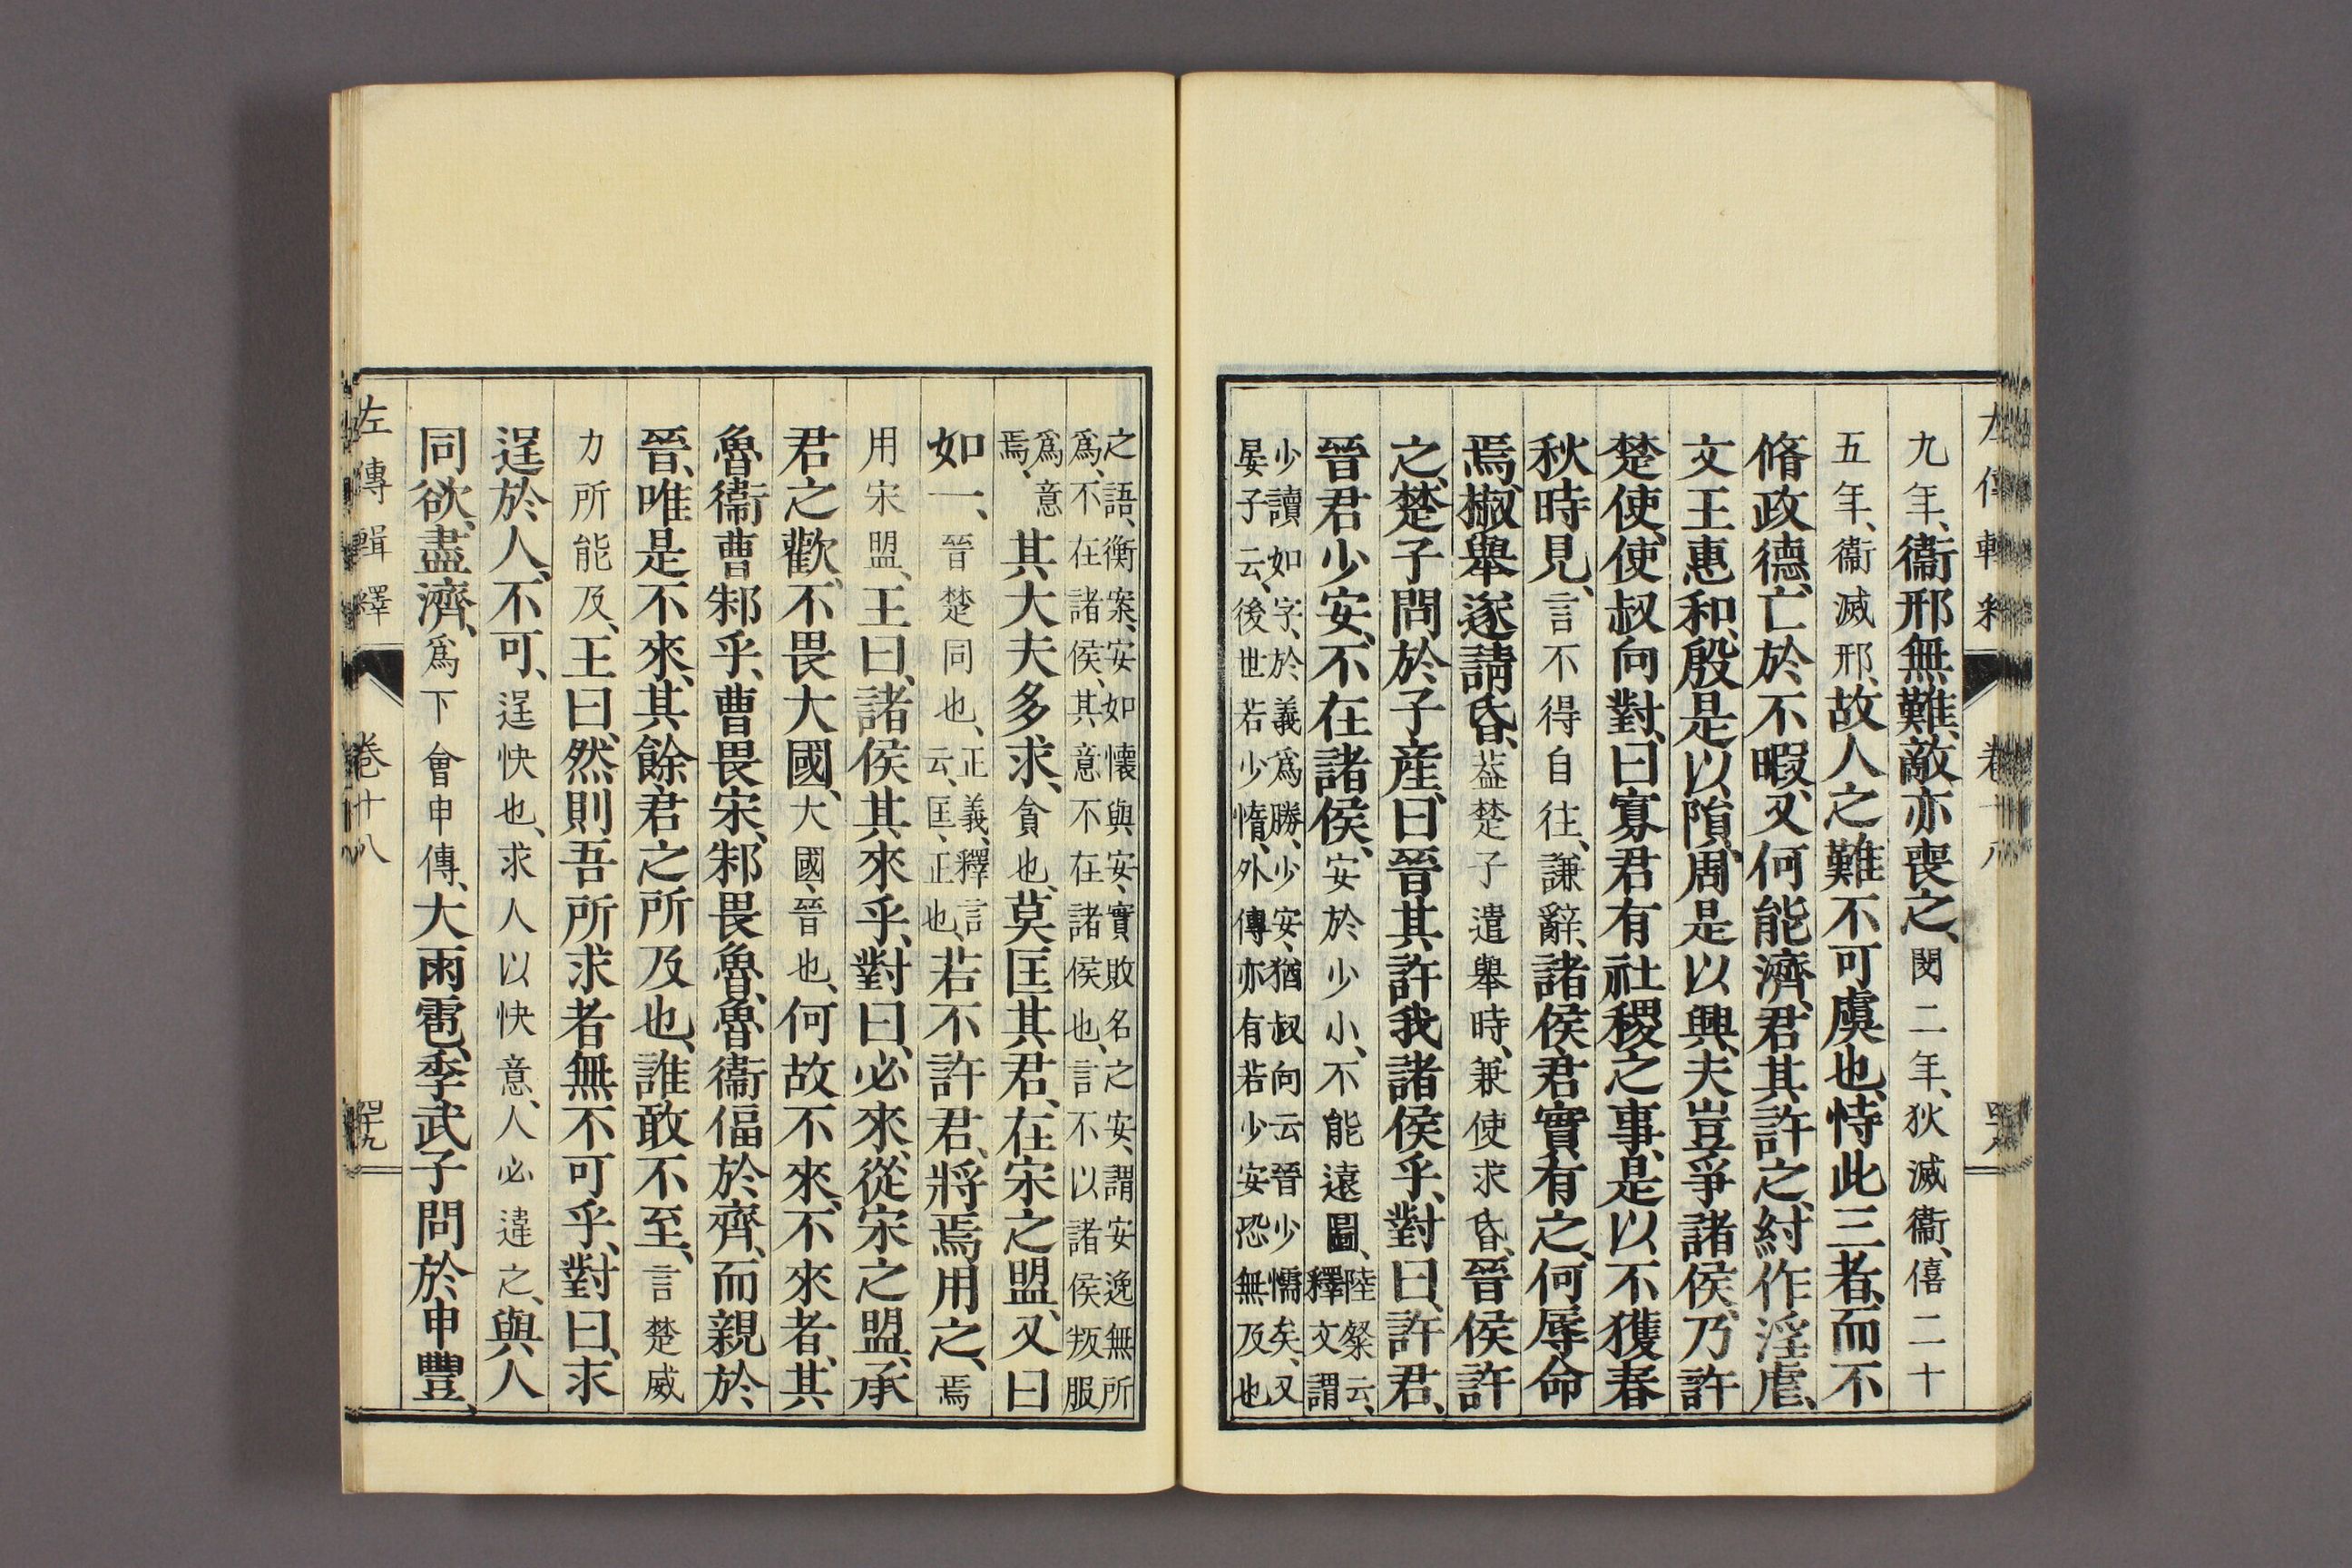 九年、衞邢無難、敵亦喪之、閔二年、狄滅衞、僖二十
五年、衞滅邢、故人之難不可虞也、恃此三者、而不
脩政德、亡於不暇、又何能濟、君其許之、紂作淫虐、
文王惠和、殷是以隕、周是以興、夫豈爭諸侯、乃許
楚使、使叔向對、曰寡君有社稷之事、是以不獲春
秋時見、言不得自往、謙辭、諸侯、君實有之、何辱命
焉、椒舉遂請昏、葢楚子遣舉時、兼使求昏、晉侯許
之、楚子問於子產、曰晉其許我諸侯乎、對曰、許君、
晉君少安、不在諸侯、安於少小、不能遠圖、陸粲云、釋文謂
少讀如字、於義爲勝、少安、猶叔向云晉少懦矣、又
晏子云、後世若少惰、外傳亦有若少安恐無及也
之語、衡案、安如懷與安、實敗名之安、謂安逸無所
爲、不在諸侯、其意不在諸侯也、言不以諸侯叛服
爲意焉、其大夫多求、貪也、莫匡其君、在宋之盟、又曰
如一、晉楚同也、正義、釋言云、匡、正也、若不許君、將焉用之、焉
用宋盟、王曰、諸侯其來乎、對曰、必來、從宋之盟、承
君之歡、不畏大國、大國、晉也、何故不來、不來者、其
魯衞曹邾乎、曹畏宋、邾畏魯、魯衞偪於齊、而親於
晉、唯是不來、其餘君之所及也、誰敢不至、言楚威
力所能及、王曰、然則吾所求者無不可乎、對曰、求
逞於人、不可、逞快也、求人以快意、人必違之、與人
同欲、盡濟、爲下會申傳、大雨雹、季武子問於申豐、
左傳輯釋 卷十八 四十九